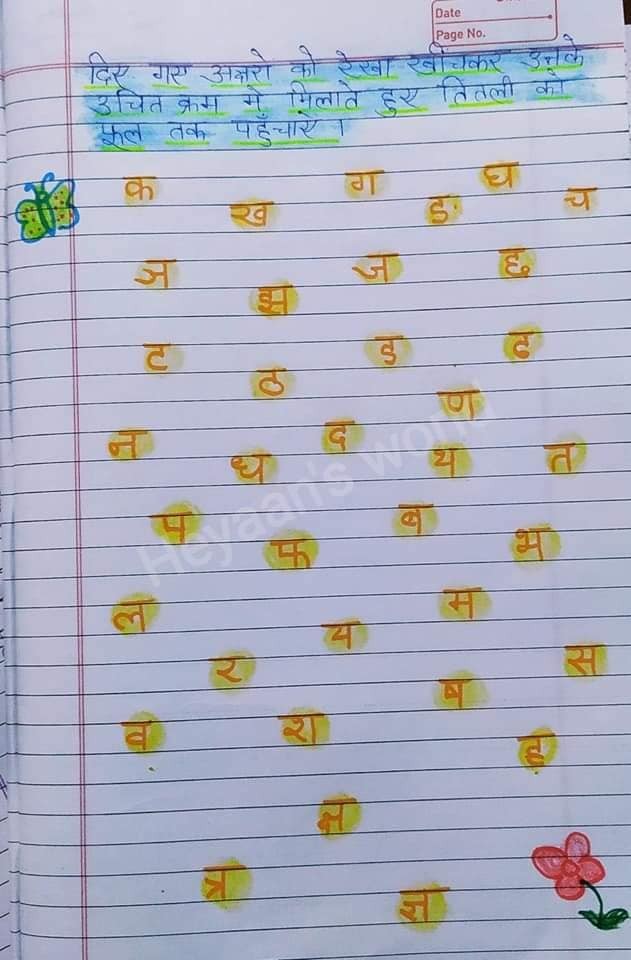 Date
Page No.
दिए गए अक्षरो को रेखा खींचकर उनके
उचित क्रम मे मिलाते हुए तितली को
फूल तक पहुँचाएे ।
क ख ग ङ घ च
ञ झ ज छ
ट ठ ड ढ
ण
न ध द थ त
प फ ब भ
ल र य म
व श ष स
ह
क्ष
त्र ज्ञ
Heyaan's world